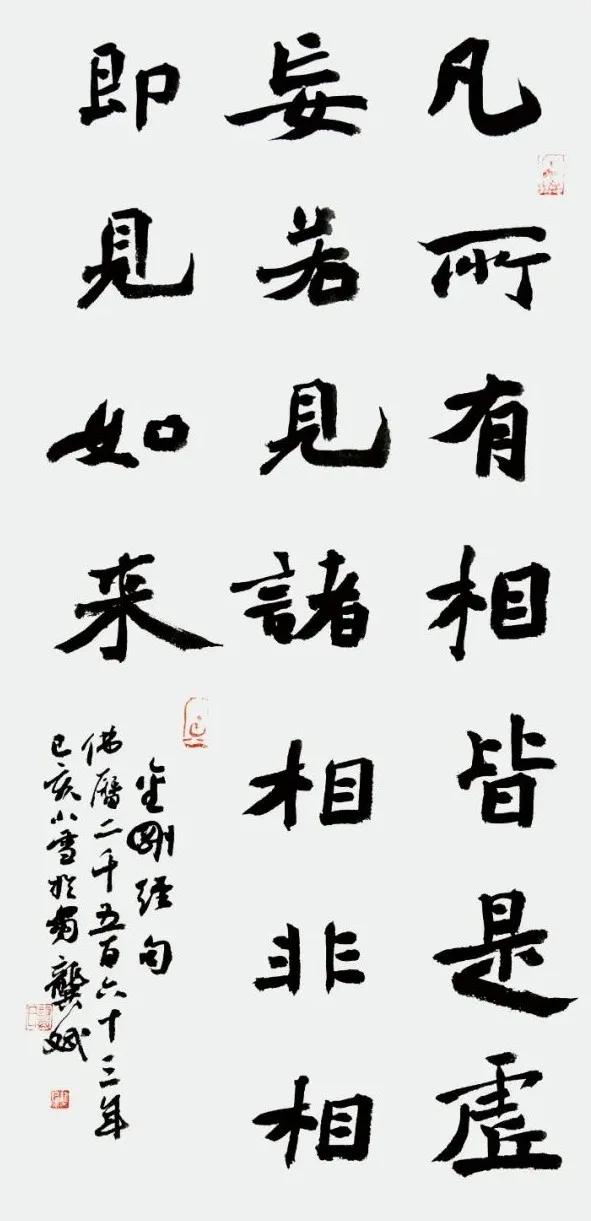 凡所有相皆是虚
妄若見諸相非相
即見如来
金剛經句
佛曆二千五百六十三年
己亥小雪於蜀龔斌